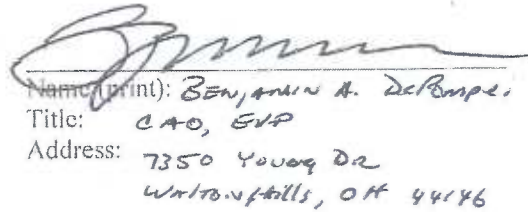 Name (print): BENJAMIN A. DePompei
Title: CAO, EVP
Address: 7350 Young DR
Walton Hills, OH 44146